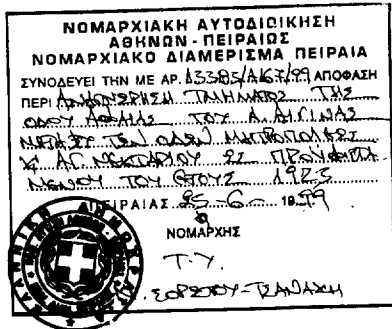 ΝΟΜΑΡΧΙΑΚΗ ΑΥΤΟΔΙΟΙΚΗΣΗ
ΑΘΗΝΩΝ - ΠΕΙΡΑΙΩΣ
ΝΟΜΑΡΧΙΑΚΟ ΔΙΑΜΕΡΙΣΜΑ ΠΕΙΡΑΙΑ
ΣΥΝΟΔΕΥΕΙ ΤΗΝ ΜΕ ΑΡ. 13385/Α167/99 ΑΠΟΦΑΣΗ
ΠΕΡΙ ΤΜΗΜΑΤΟΣ ΤΗΣ
ΟΔΟΥ ΑΦΑΙΑΣ ΤΟΥ Δ. ΑΙΓΙΝΑΣ
ΜΕΤΑΞΥ ΤΩΝ ΟΔΩΝ ΜΗΤΡΟΠΟΛΕΩΣ
ΑΓ. ΝΕΚΤΑΡΙΟΥ ΩΣ
ΤΟΥ ΕΤΟΥΣ 1923
ΠΕΙΡΑΙΑΣ 25-6-1999
ΝΟΜΑΡΧΗΣ
Τ.Υ.